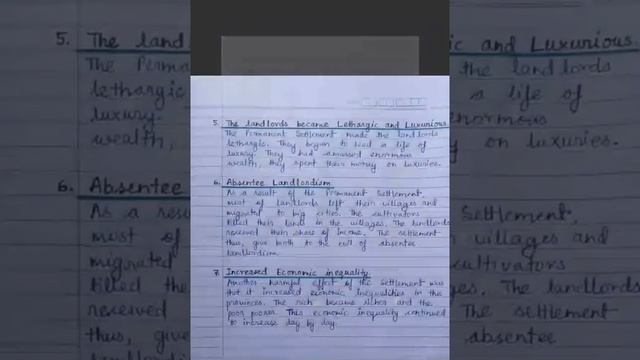 5. The landlords became Lethargic and Luxurious
The Permanent Settlement made the landlords
lethargic. They began to lead a life of
luxury. They had amassed enormous
wealth, they spent their money on luxuries.
6. Absentee Landlordism
As a result of the Permanent Settlement,
most of landlords left their villages and
migrated to big cities. The cultivators
tilled their lands in the villages. The landlords
received their share of income. The settlement
thus, give birth to the evil of absentee
landlordism.
7. Increased Economic inequality
Another harmful effect of the settlement was
that it increased economic inequalities in the
provinces. The rich became richer and the
poor poorer. This economic inequality continued
to increase day by day.